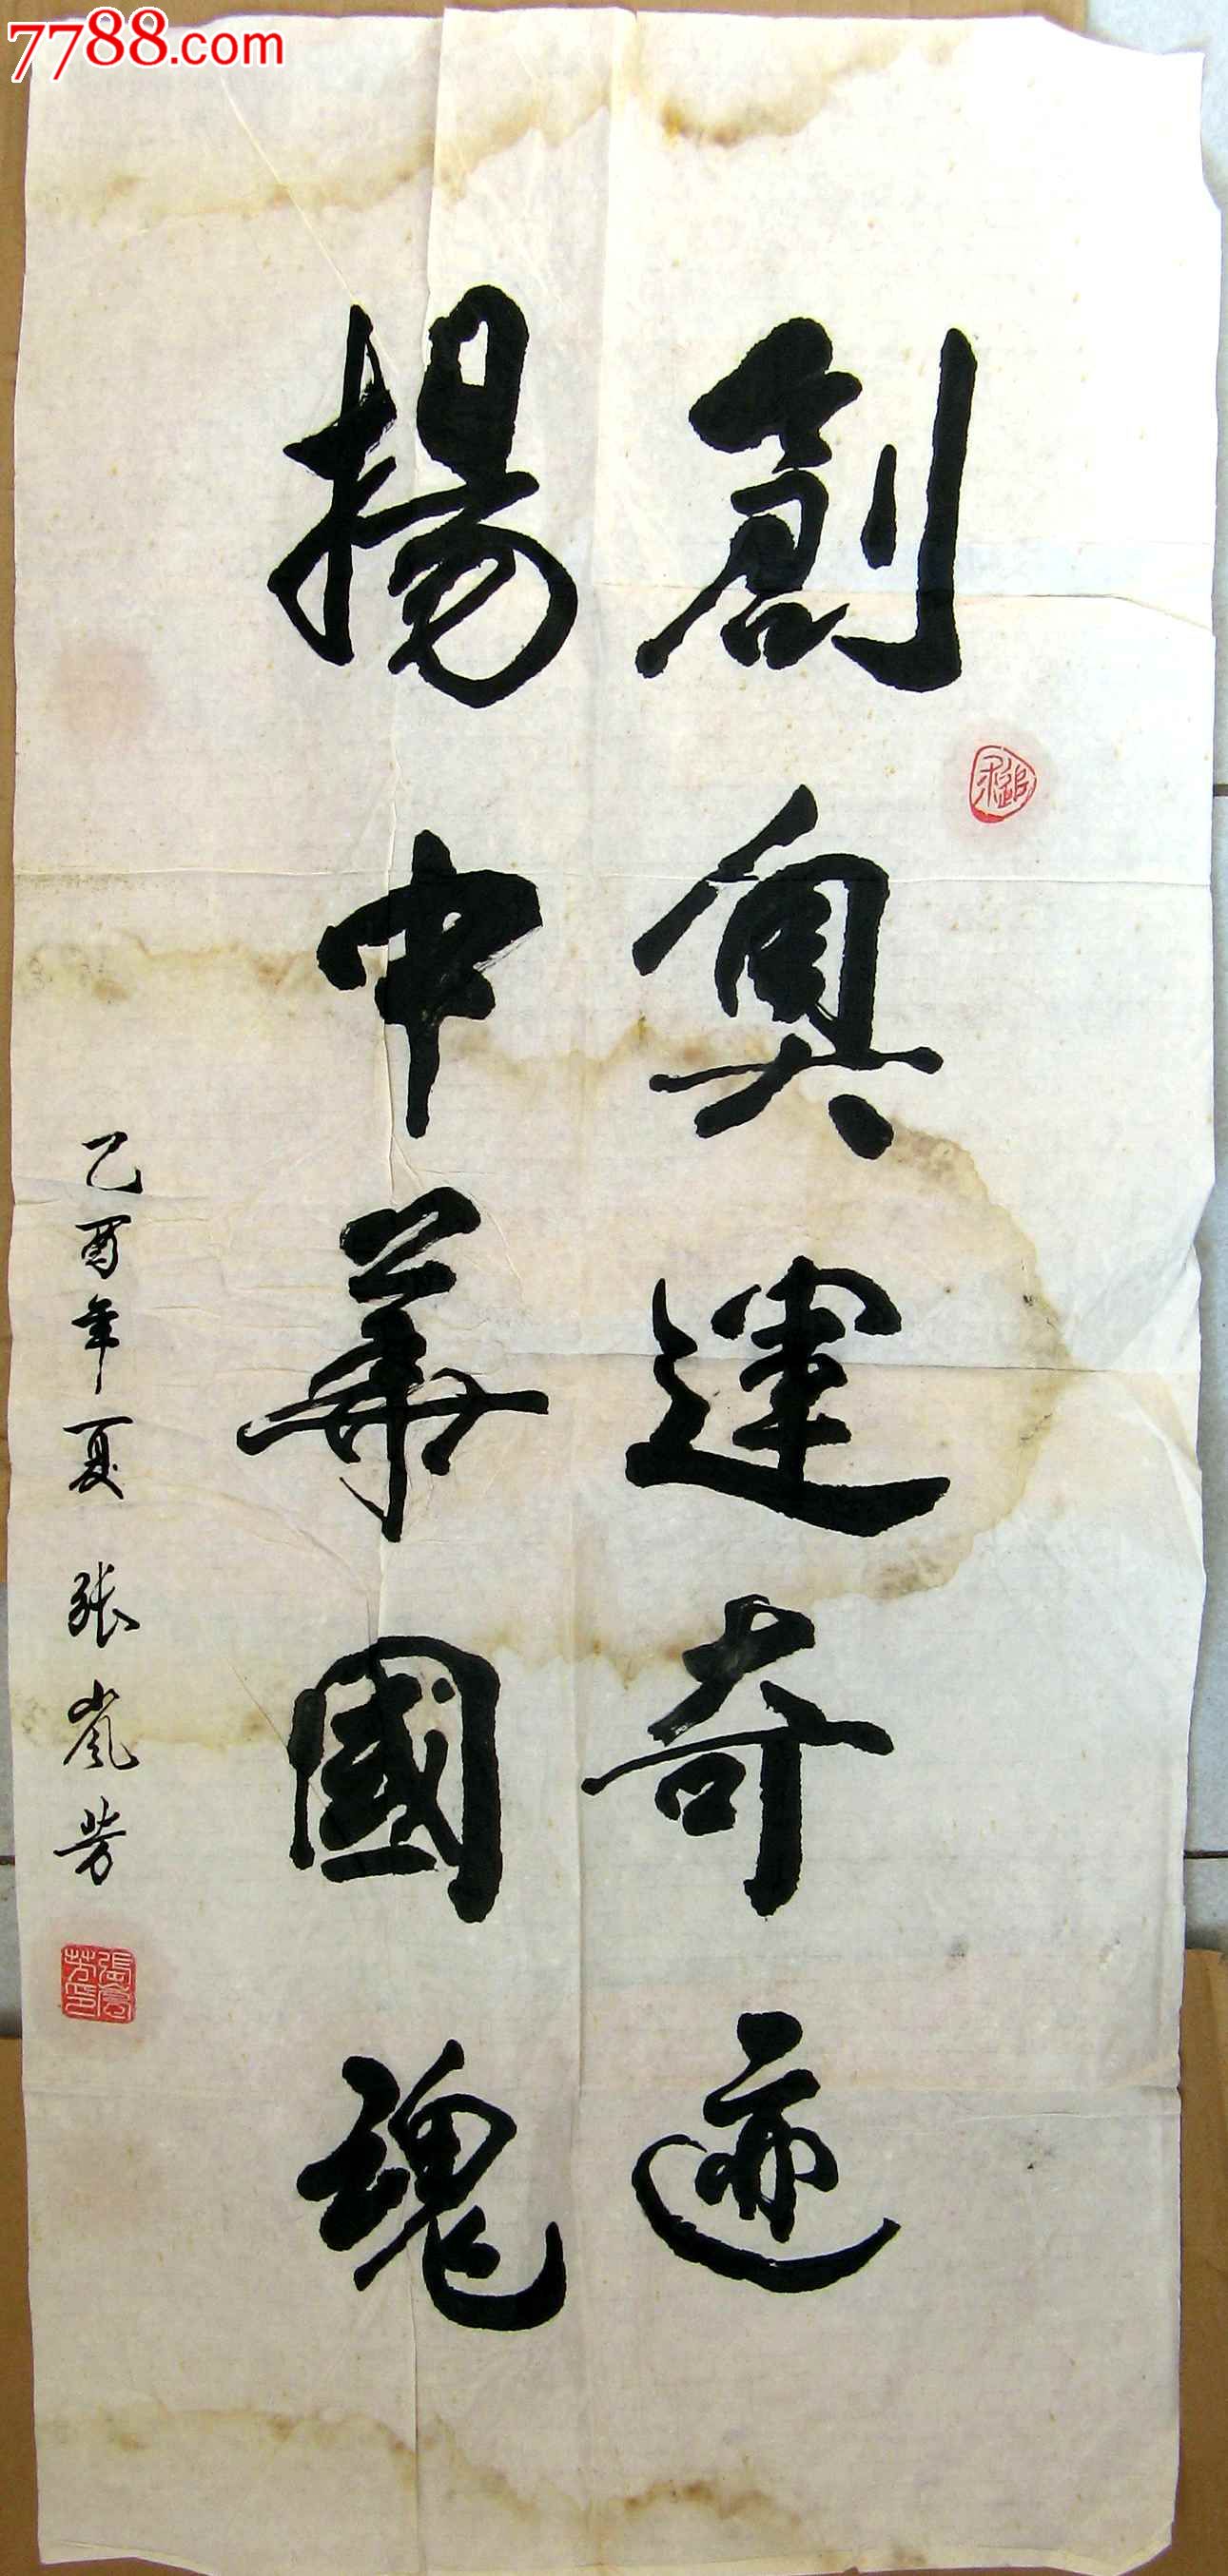 7788.com
創奥運奇迹
揚中華國魂
乙酉年夏 张嵐芳
追求
張嵐芳印